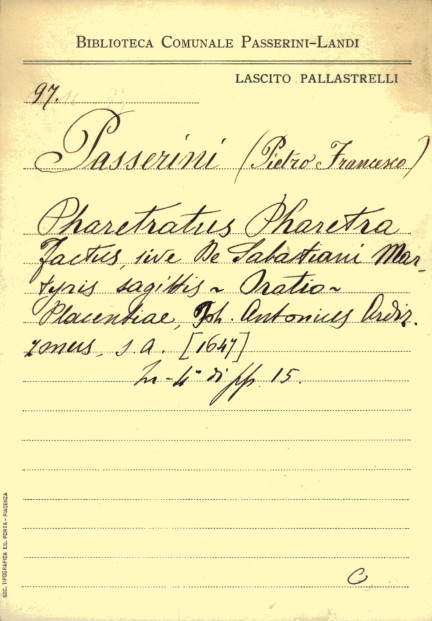 BIBLIOTECA COMUNALE PASSERINI-LANDI
LASCITO PALLASTRELLI
97.
Passerini (Pietro Francesco)
Pharetratus Pharetra
factus, sive De Sabastiani Mar-
tyris sagittis ~ Oratio ~
Placentiae, Joh. Antonius Ardiz-
zonus, s. a. [1647]
In-4° di pp. 15.
C
SOC. TIPOGRAFICA ED. PORTA - PIACENZA